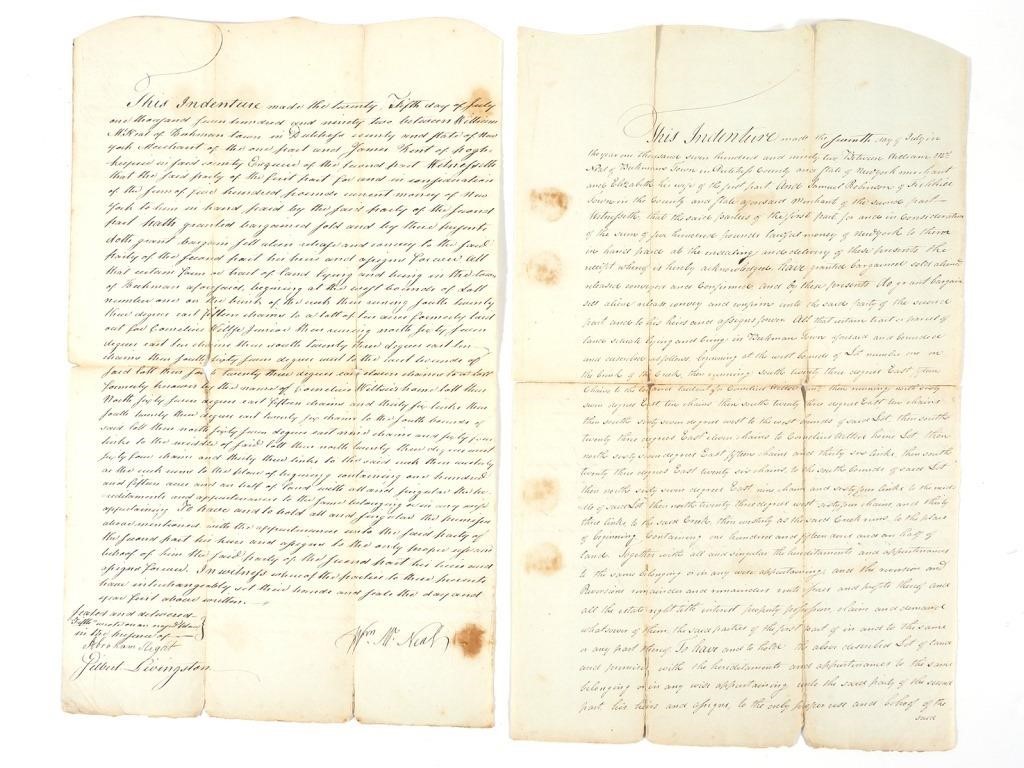 This Indenture made the twenty Fifth day of July
one thousand seven hundred and ninety two between William
McNeal of Beekman town in Dutchess county and state of New
york Merchant of the one part and James Kent of Pogh
keepsie in said county Esquire of the second part Witnesseth
that the said party of the first part for and in consideration
of the sum of five hundred pounds current money of New
York to him in hand paid by the said party of the second
part hath granted bargained sold and by these presents
doth grant bargain sell alien release and convey to the said
party of the second part his heirs and assigns forever All
that certain farm or tract of land lying and being in the town
of Beekman aforesaid, begining at the west bounds of Lott
number one on the bank of the creek then runing south twenty
three degrees east fifteen chains to a lott of ten acres formerly laid
out for Cornelius Junior then runing north sixty seven
degrees east ten chains then south twenty three degrees east ten
chains then south sixty seven degrees west to the west bounds of
said lott then south twenty three degrees east eleven chains to a lott
formerly known by the name of Cornelius home lott then
North sixty seven degrees east fifteen chains and thirty six links then
south twenty three degrees east twenty six chains to the south bounds of
said lott then north sixty seven degrees east nine chains and sixty four
links to the middle of said lott then north twenty three degrees west
sixty four chains and thirty three links to the said creek then westerly
as the creek runs to the place of begining containing one hundred
and fifteen acres and an half of land with all and singular the he-
reditaments and appurtenances to the same belonging or in any wise
appertaining To have and to hold all and singular the premises
above mentioned with the appurtenances unto the said party of
the second part his heirs and assigns to the only proper use and
behoof of him the said party of the second part his heirs and
assigns forever. In witness whereof the parties to these presents
have interchangeably set their hands and seals the day and
year first above written.
Sealed and delivered
in the presence of
Abraham
Gilbert Livingston
Wm. McNeal
This Indenture made the seventh day of July in
the year one thousand seven hundred and ninety two Between William Mc
Neal of Beekmans Town in Dutchess County and State of Newyork merchant
and Elizabeth his wife of the first part And Samuel Robinson of
Town in the County and State aforesaid Merchant of the second part
Witnesseth, that the said parties of the first part for and in Consideration
of the sum of five hundred pounds lawful money of Newyork to them
in hand paid at the ensealing and delivery of these presents the
receipt whereof is hereby acknowledged, have granted bargained sold aliened
released conveyed and confirmed and by these presents do grant bargain
sell alien release convey and confirm unto the said party of the second
part and to his heirs and assigns forever All that certain tract or parcel of
land situate lying and being in Beekman Town aforesaid and bounded
and described as follows, begining at the west bounds of Lot number one on
the bank of the Creek, then running South twenty three degrees East fifteen
Chains to the laid out for Cornelius then running north sixty
seven degrees East ten chains then south twenty three degrees East ten chains
then south sixty seven degrees west to the west bounds of said Lot then south
twenty three degrees East eleven chains to Cornelius home Lot then
north sixty seven degrees East fifteen chains and thirty six links, then south
twenty three degrees East twenty six chains, to the south bounds of said Lot
then north sixty seven degrees East, nine chains and sixty four links to the midd-
le of said Lot then north twenty three degrees west sixty four chains and thirty
three links to the said Creek, then westerly as the said Creek runs, to the place
of begining Containing one hundred and fifteen acres and an half of
land. Together with all and singular the hereditaments and appurtenances
to the same belonging or in any wise appertaining, and the reversion and
Reversions remainder and remainders rents issues and profits thereof and
all the estate right title interest property possession, claim and demand
whatsoever of them the said parties of the first part of in and to the same
or any part thereof, To have and to hold the above described Lot of land
and premises, with the hereditaments and appurtenances to the same
belonging or in any wise appertaining unto the said party of the second
part his heirs and assigns, to the only proper use and behoof of the
said